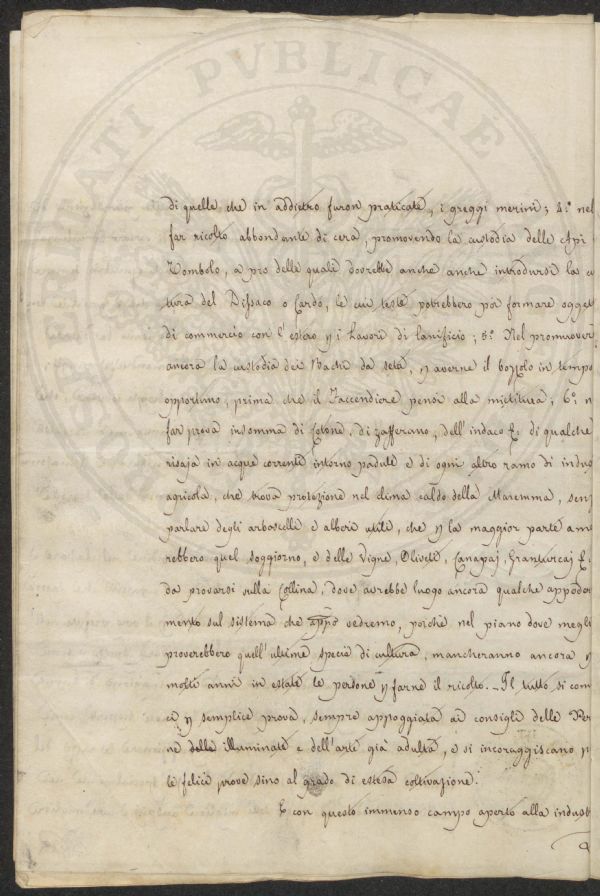 PVBLICAE
di quelle che in addietro furon praticate, i greggi merini; 4.º nel
far ricolto abbondante di cera, promovendo la custodia delle Api
Tombolo, a pro delle quali dovrebbe anche anche introdursi la c
tura del Dissaco o Cardo, le cui teste potrebbero poi formare ogget
di commercio con l'estero, e i Lavori di lanificio; 5.º Nel promuover
ancora la custodia dei Bachi da seta, e averne il bozzolo in tempo
opportuno, prima che il Faccendiere pensi alla mietitura; 6.º n
far prova insomma di Cotone, di zafferano, dell'indaco &: di qualche
risaja in acque correnti intorno padule e di ogni altro ramo di indus
agricola, che trova protezione nel clima caldo della Maremma, senz
parlare degli arboscelli e alberi utili, che y la maggior parte ame
rebbero quel soggiorno, e delle Vigne, Oliveti, Canapaj, Granturcaj &
da provarsi sulla Collina, dove avrebbe luogo ancora qualche appoder
mento sul sistema che appo vedremo, poiché nel piano dove megli
proverebbero quell'ultime specie di cultura, mancheranno ancora y
molti anni in estate le persone y farne il ricolto. – Il tutto si com
ci y semplice prova, sempre appoggiata ai consigli delle Per
ne delle illuminate e dell'arte già adulta, e si incoraggiscano p
le felici prove sino al grado di estesa coltivazione.
E con questo immenso campo aperto alla indust